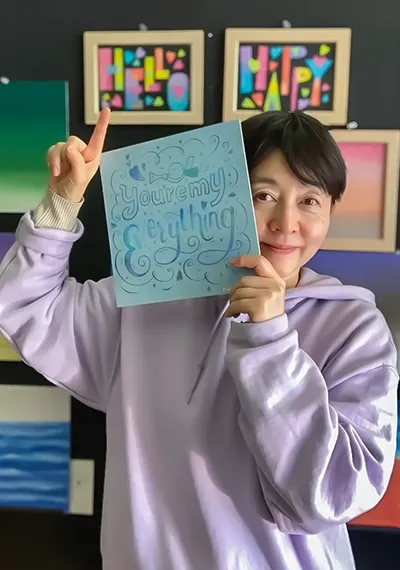 HELLO
HAPPY
You're my
Everything